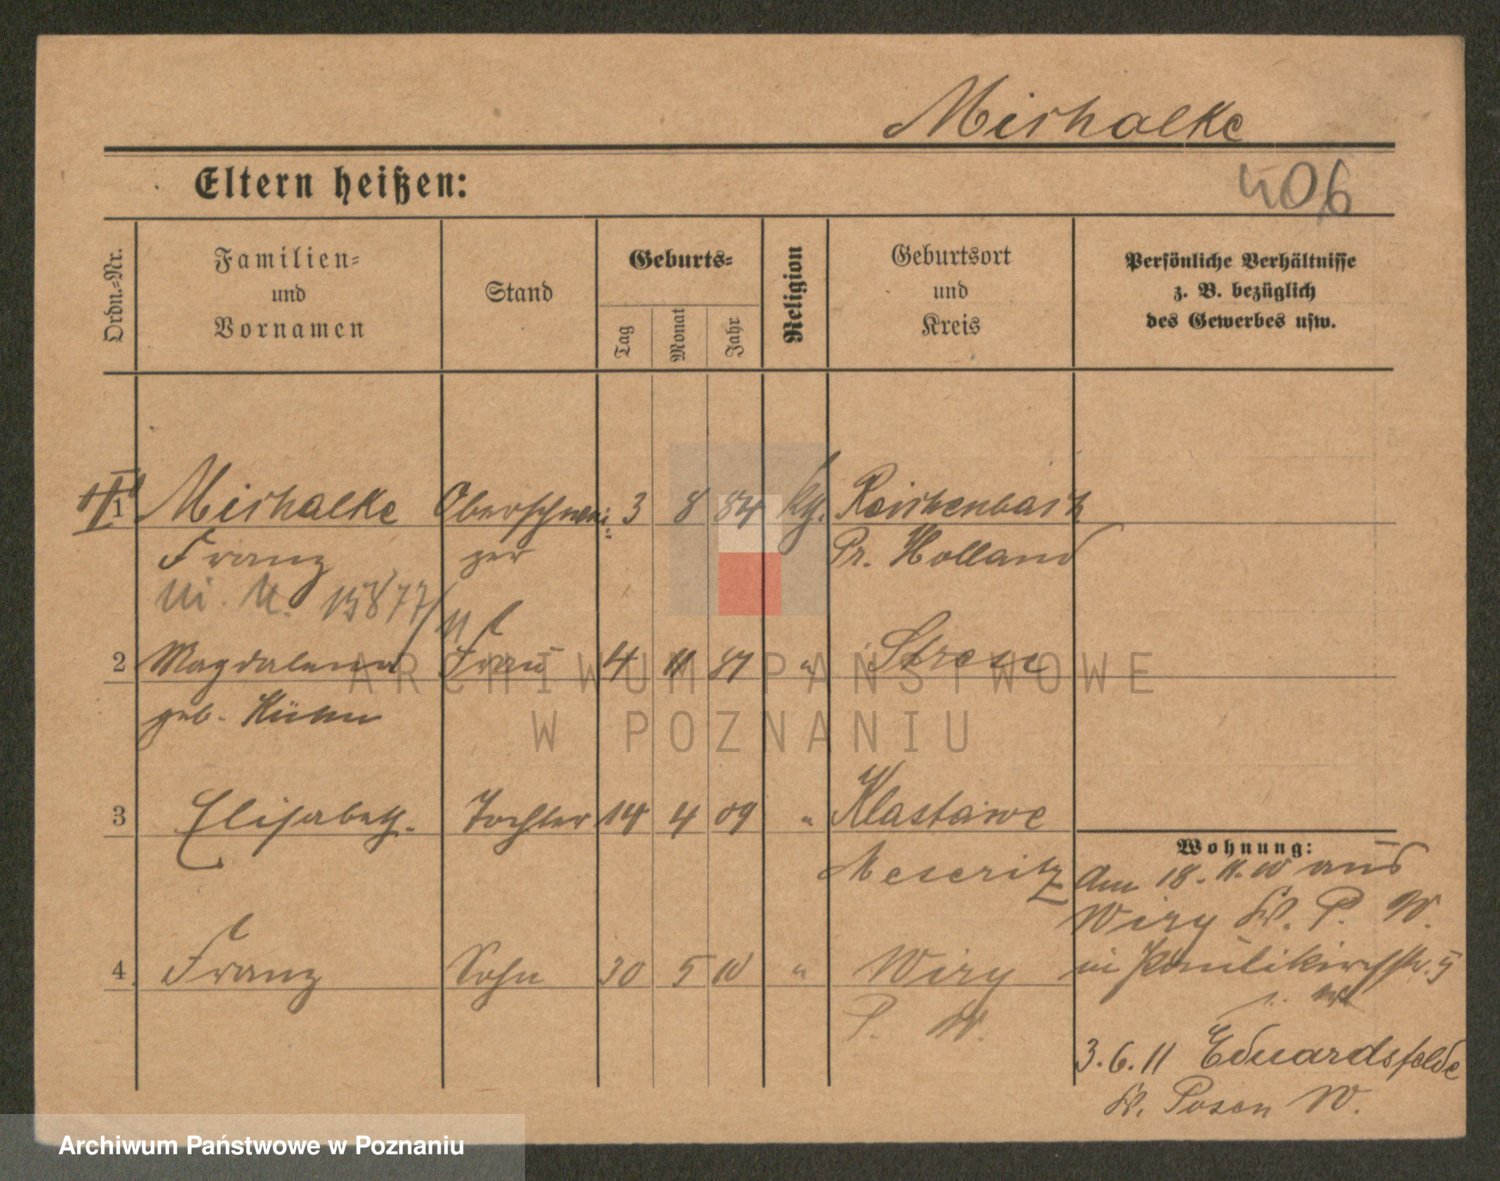 Mischalke
406
Eltern heißen:
Ordn.-Nr.
Familien-
und
Vornamen
Stand
Geburts-
Tag
Monat
Jahr
Religion
Geburtsort
und
Kreis
Persönliche Verhältnisse
z. B. bezüglich
des Gewerbes usw.
1 Mischalke Oberschwei- 3 8 84 kg. Reichenbach
Franz zer Pr. Holland
15877/11
2 Magdalena Frau 4 11 87 " Strese
geb. Kühn
3 Elisabeth. Tochter 14 4 09 " Klastawe
Meseritz
4 Franz Sohn 30 5 10 " Wiry
P. W.
Wohnung:
Am 18.11.10 aus
Wiry Kr. P. W.
in Paulikirchstr. 5
3.6.11 Eduardsfelde
Kr. Posen W.
ARCHIWUM PAŃSTWOWE
W POZNANIU
Archiwum Państwowe w Poznaniu